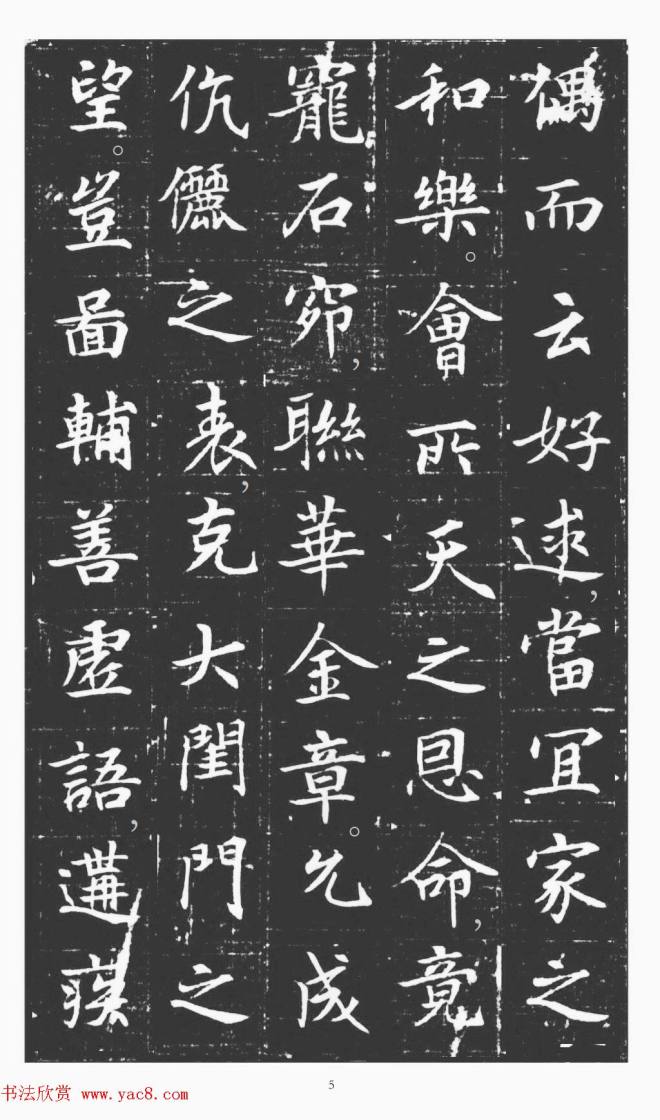 偶而云好逑，當冝家之
和樂。會所天之恩命，竟
寵石窌，聯華金章。允成
伉儷之表，克大閨門之
望。豈啚輔善虛語，遘疾
5
书法欣赏 www.yac8.com